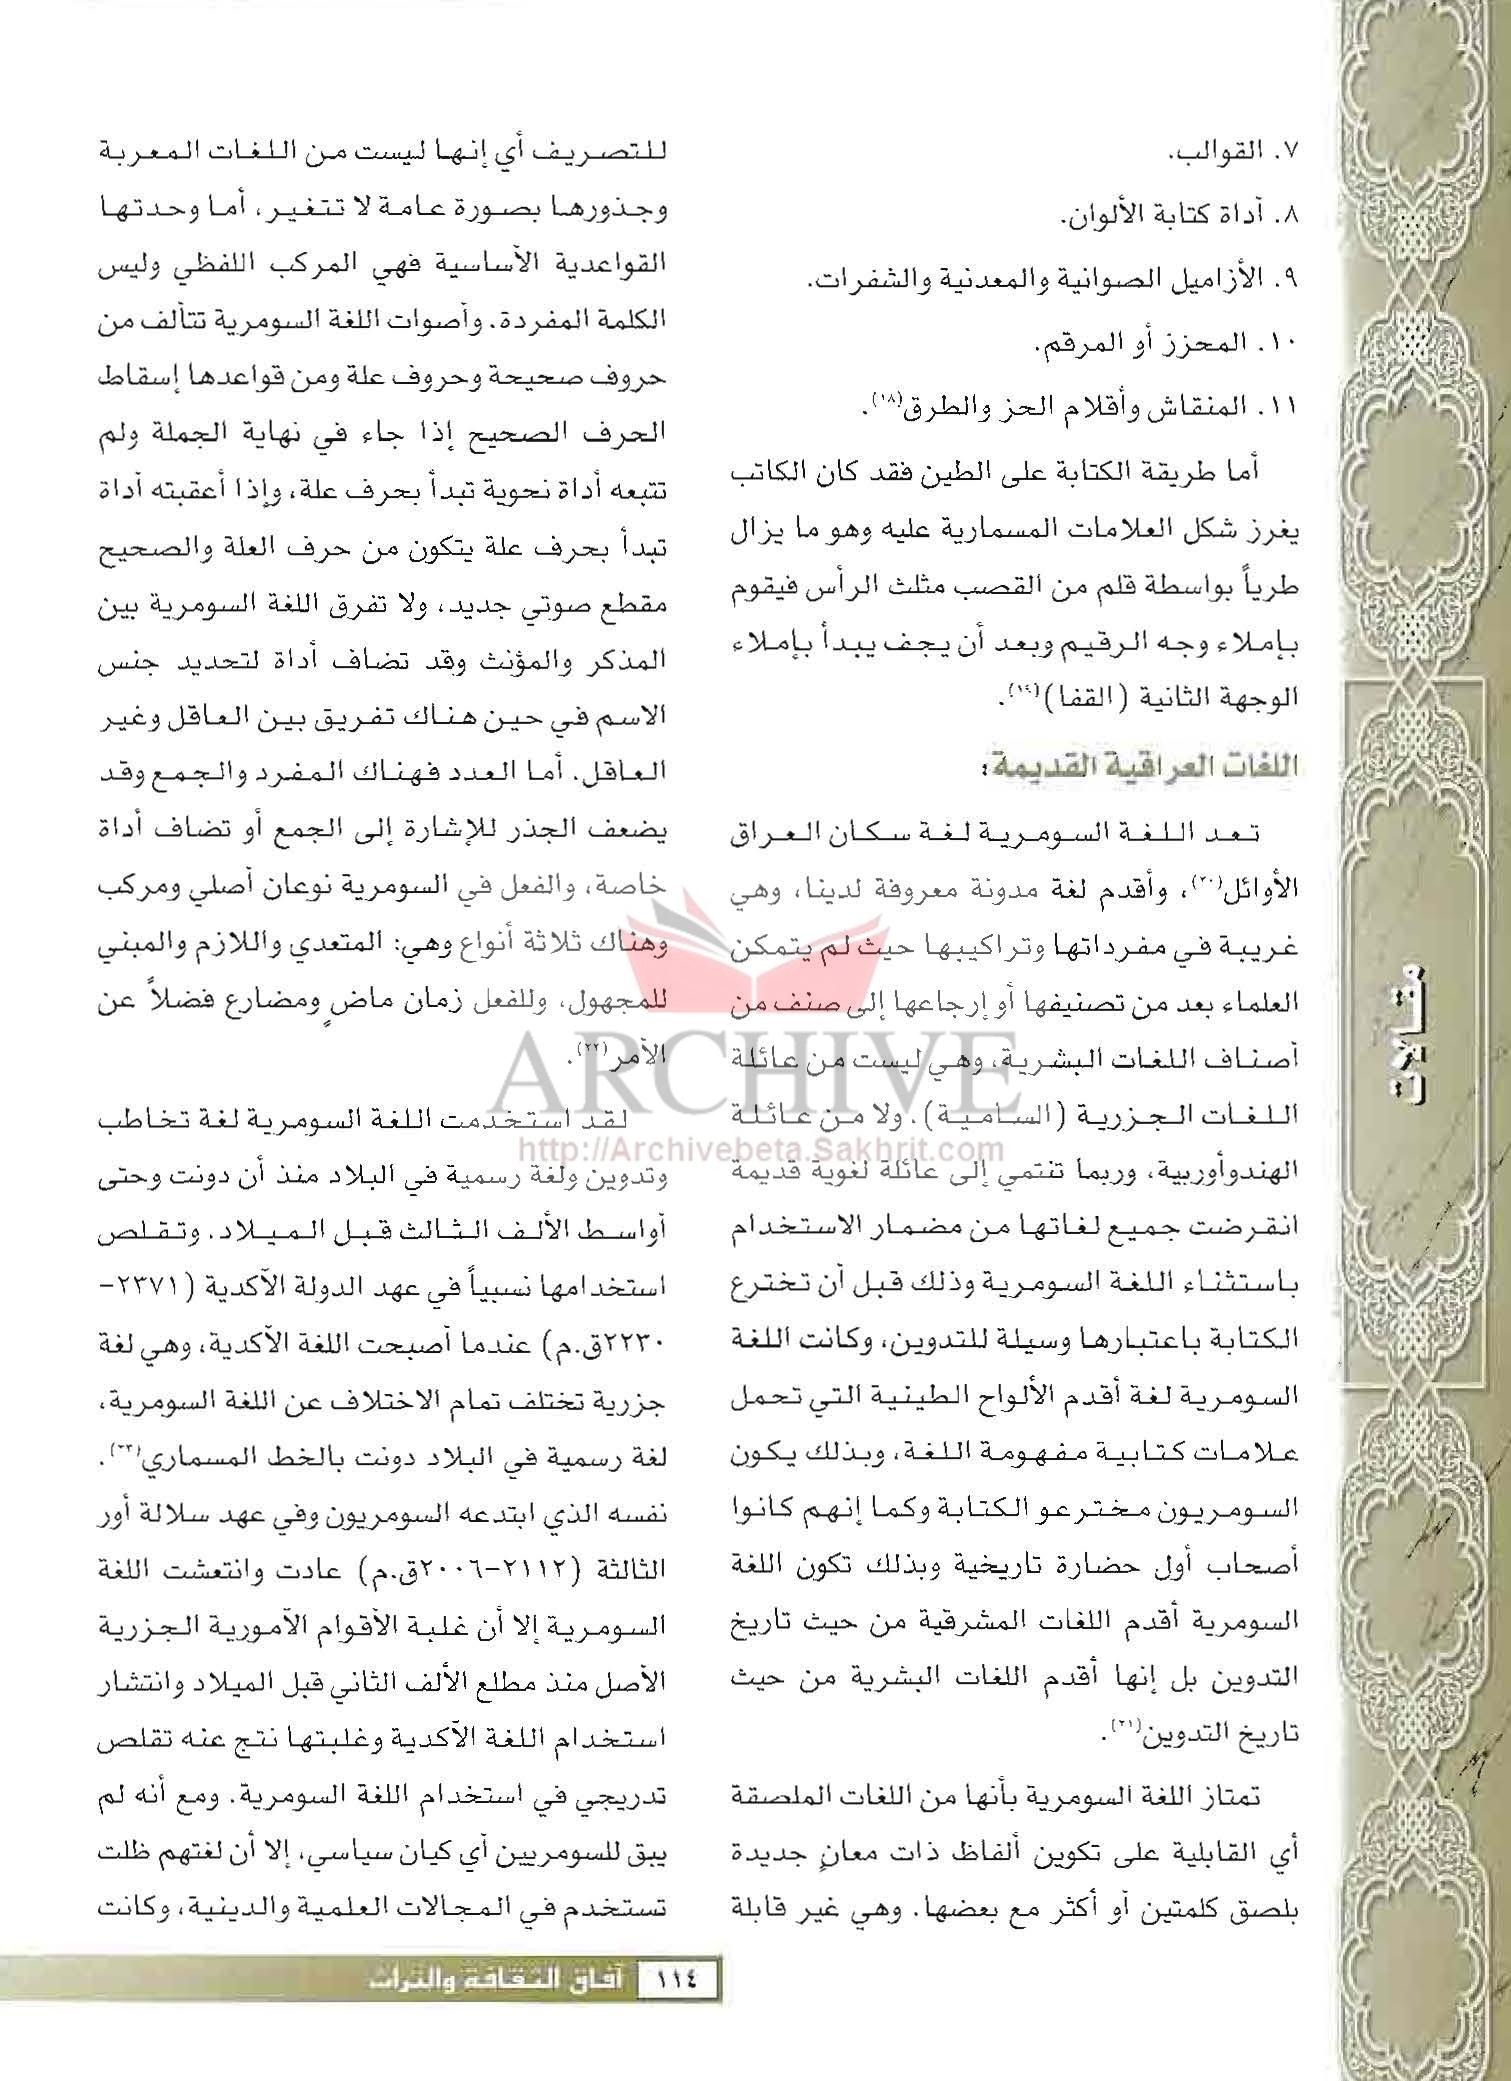 ٧. القوالب.
٨. أداة كتابة الألوان.
٩. الأزاميل الصوانية والمعدنية والشفرات.
١٠. المحزز أو المرقم.
١١. المنقاش وأقلام الحز والطرق(١٨).
أما طريقة الكتابة على الطين فقد كان الكاتب
يغرز شكل العلامات المسمارية عليه وهو ما يزال
طرياً بواسطة قلم من القصب مثلث الرأس فيقوم
بإملاء وجه الرقيم وبعد أن يجف يبدأ بإملاء
الوجهة الثانية (القفا)(١٩).
اللغات العراقية القديمة:
تعد اللغة السومرية لغة سكان العراق
الأوائل(٢٠)، وأقدم لغة مدونة معروفة لدينا، وهي
غريبة في مفرداتها وتراكيبها حيث لم يتمكن
العلماء بعد من تصنيفها أو إرجاعها إلى صنف من
أصناف اللغات البشرية، وهي ليست من عائلة
اللغات الجزرية (السامية). ولا من عائلة
الهندوأوربية، وربما تنتمي إلى عائلة لغوية قديمة
انقرضت جميع لغاتها من مضمار الاستخدام
باستثناء اللغة السومرية وذلك قبل أن تخترع
الكتابة باعتبارها وسيلة للتدوين، وكانت اللغة
السومرية لغة أقدم الألواح الطينية التي تحمل
علامات كتابية مفهومة اللغة، وبذلك يكون
السومريون مخترعو الكتابة وكما إنهم كانوا
أصحاب أول حضارة تاريخية وبذلك تكون اللغة
السومرية أقدم اللغات المشرقية من حيث تاريخ
التدوين بل إنها أقدم اللغات البشرية من حيث
تاريخ التدوين(٢١).
تمتاز اللغة السومرية بأنها من اللغات الملصقة
أي القابلية على تكوين ألفاظ ذات معانٍ جديدة
بلصق كلمتين أو أكثر مع بعضها. وهي غير قابلة
للتصريف أي إنها ليست من اللغات المعربة
وجذورها بصورة عامة لا تتغير، أما وحدتها
القواعدية الأساسية فهي المركب اللفظي وليس
الكلمة المفردة. وأصوات اللغة السومرية تتألف من
حروف صحيحة وحروف علة ومن قواعدها إسقاط
الحرف الصحيح إذا جاء في نهاية الجملة ولم
تتبعه أداة نحوية تبدأ بحرف علة، وإذا أعقبته أداة
تبدأ بحرف علة يتكون من حرف العلة والصحيح
مقطع صوتي جديد، ولا تفرق اللغة السومرية بين
المذكر والمؤنث وقد تضاف أداة لتحديد جنس
الاسم في حين هناك تفريق بين العاقل وغير
العاقل. أما العدد فهناك المفرد والجمع وقد
يضعف الجذر للإشارة إلى الجمع أو تضاف أداة
خاصة، والفعل في السومرية نوعان أصلي ومركب
وهناك ثلاثة أنواع وهي: المتعدي واللازم والمبني
للمجهول، وللفعل زمان ماضٍ ومضارع فضلاً عن
الأمر(٢٢).
لقد استخدمت اللغة السومرية لغة تخاطب
وتدوين ولغة رسمية في البلاد منذ أن دونت وحتى
أواسط الألف الثالث قبل الميلاد. وتقلص
استخدامها نسبياً في عهد الدولة الآكدية (٢٣٧١-
٢٢٣٠ق.م) عندما أصبحت اللغة الآكدية، وهي لغة
جزرية تختلف تمام الاختلاف عن اللغة السومرية،
لغة رسمية في البلاد دونت بالخط المسماري(٢٣).
نفسه الذي ابتدعه السومريون وفي عهد سلالة أور
الثالثة (٢١١٢-٢٠٠٦ق.م) عادت وانتعشت اللغة
السومرية إلا أن غلبة الأقوام الآمورية الجزرية
الأصل منذ مطلع الألف الثاني قبل الميلاد وانتشار
استخدام اللغة الآكدية وغلبتها نتج عنه تقلص
تدريجي في استخدام اللغة السومرية. ومع أنه لم
يبق للسومريين أي كيان سياسي، إلا أن لغتهم ظلت
تستخدم في المجالات العلمية والدينية، وكانت
مقالات
ARCHIVE
http://Archivebeta.Sakhrit.com
١١٤ آفاق الثقافة والتراث